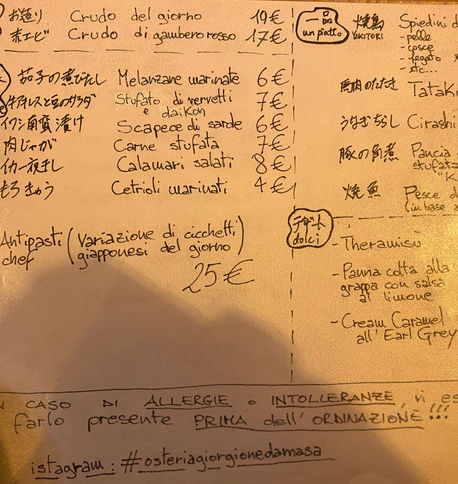 お造り Crudo del giorno 19€
赤エビ Crudo di gambero rosso 17€
茄子の煮びたし Melanzane marinate 6€
Stufato di nervetti e daikon 7€
イワシ南蛮漬け Scapece di sarde 6€
肉じゃが Carne stufata 7€
イカ一夜干し Calamari salati 8€
もろきゅう Cetrioli marinati 4€
Antipasti chef (Variazione di cicchetti
giapponesi del giorno)
25€
一品 un piatto
焼鳥 YAKITORI Spiedini d
- pelle
- cosce
- fegato
- etc...
馬肉のたたき Tatak
うなぎちらし Cirashi
豚の角煮 Pancia
stufata
"K
焼魚 Pesce d
(in base a
デザート dolci
- Theramisù
- Panna cotta alla
grappa con salsa
al limone
- Cream Caramel
all'Earl Grey
N CASO DI ALLERGIE o INTOLLERANZE, vi es
farlo presente PRIMA dell'ORDINAZIONE!!!
istagram: #osteriagiorgionedamasa